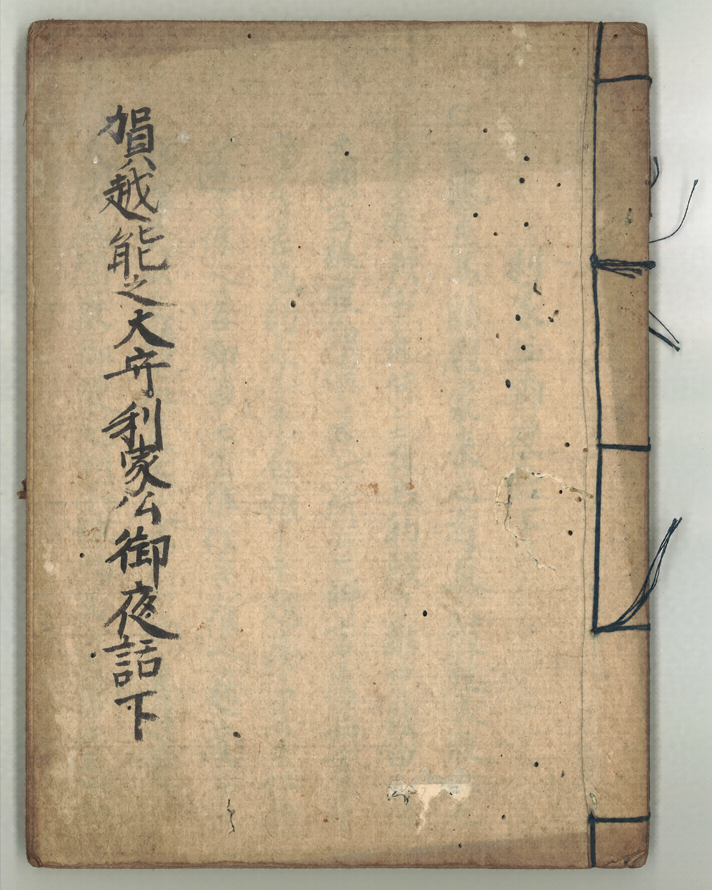 賀越能之大守利家公御夜話下